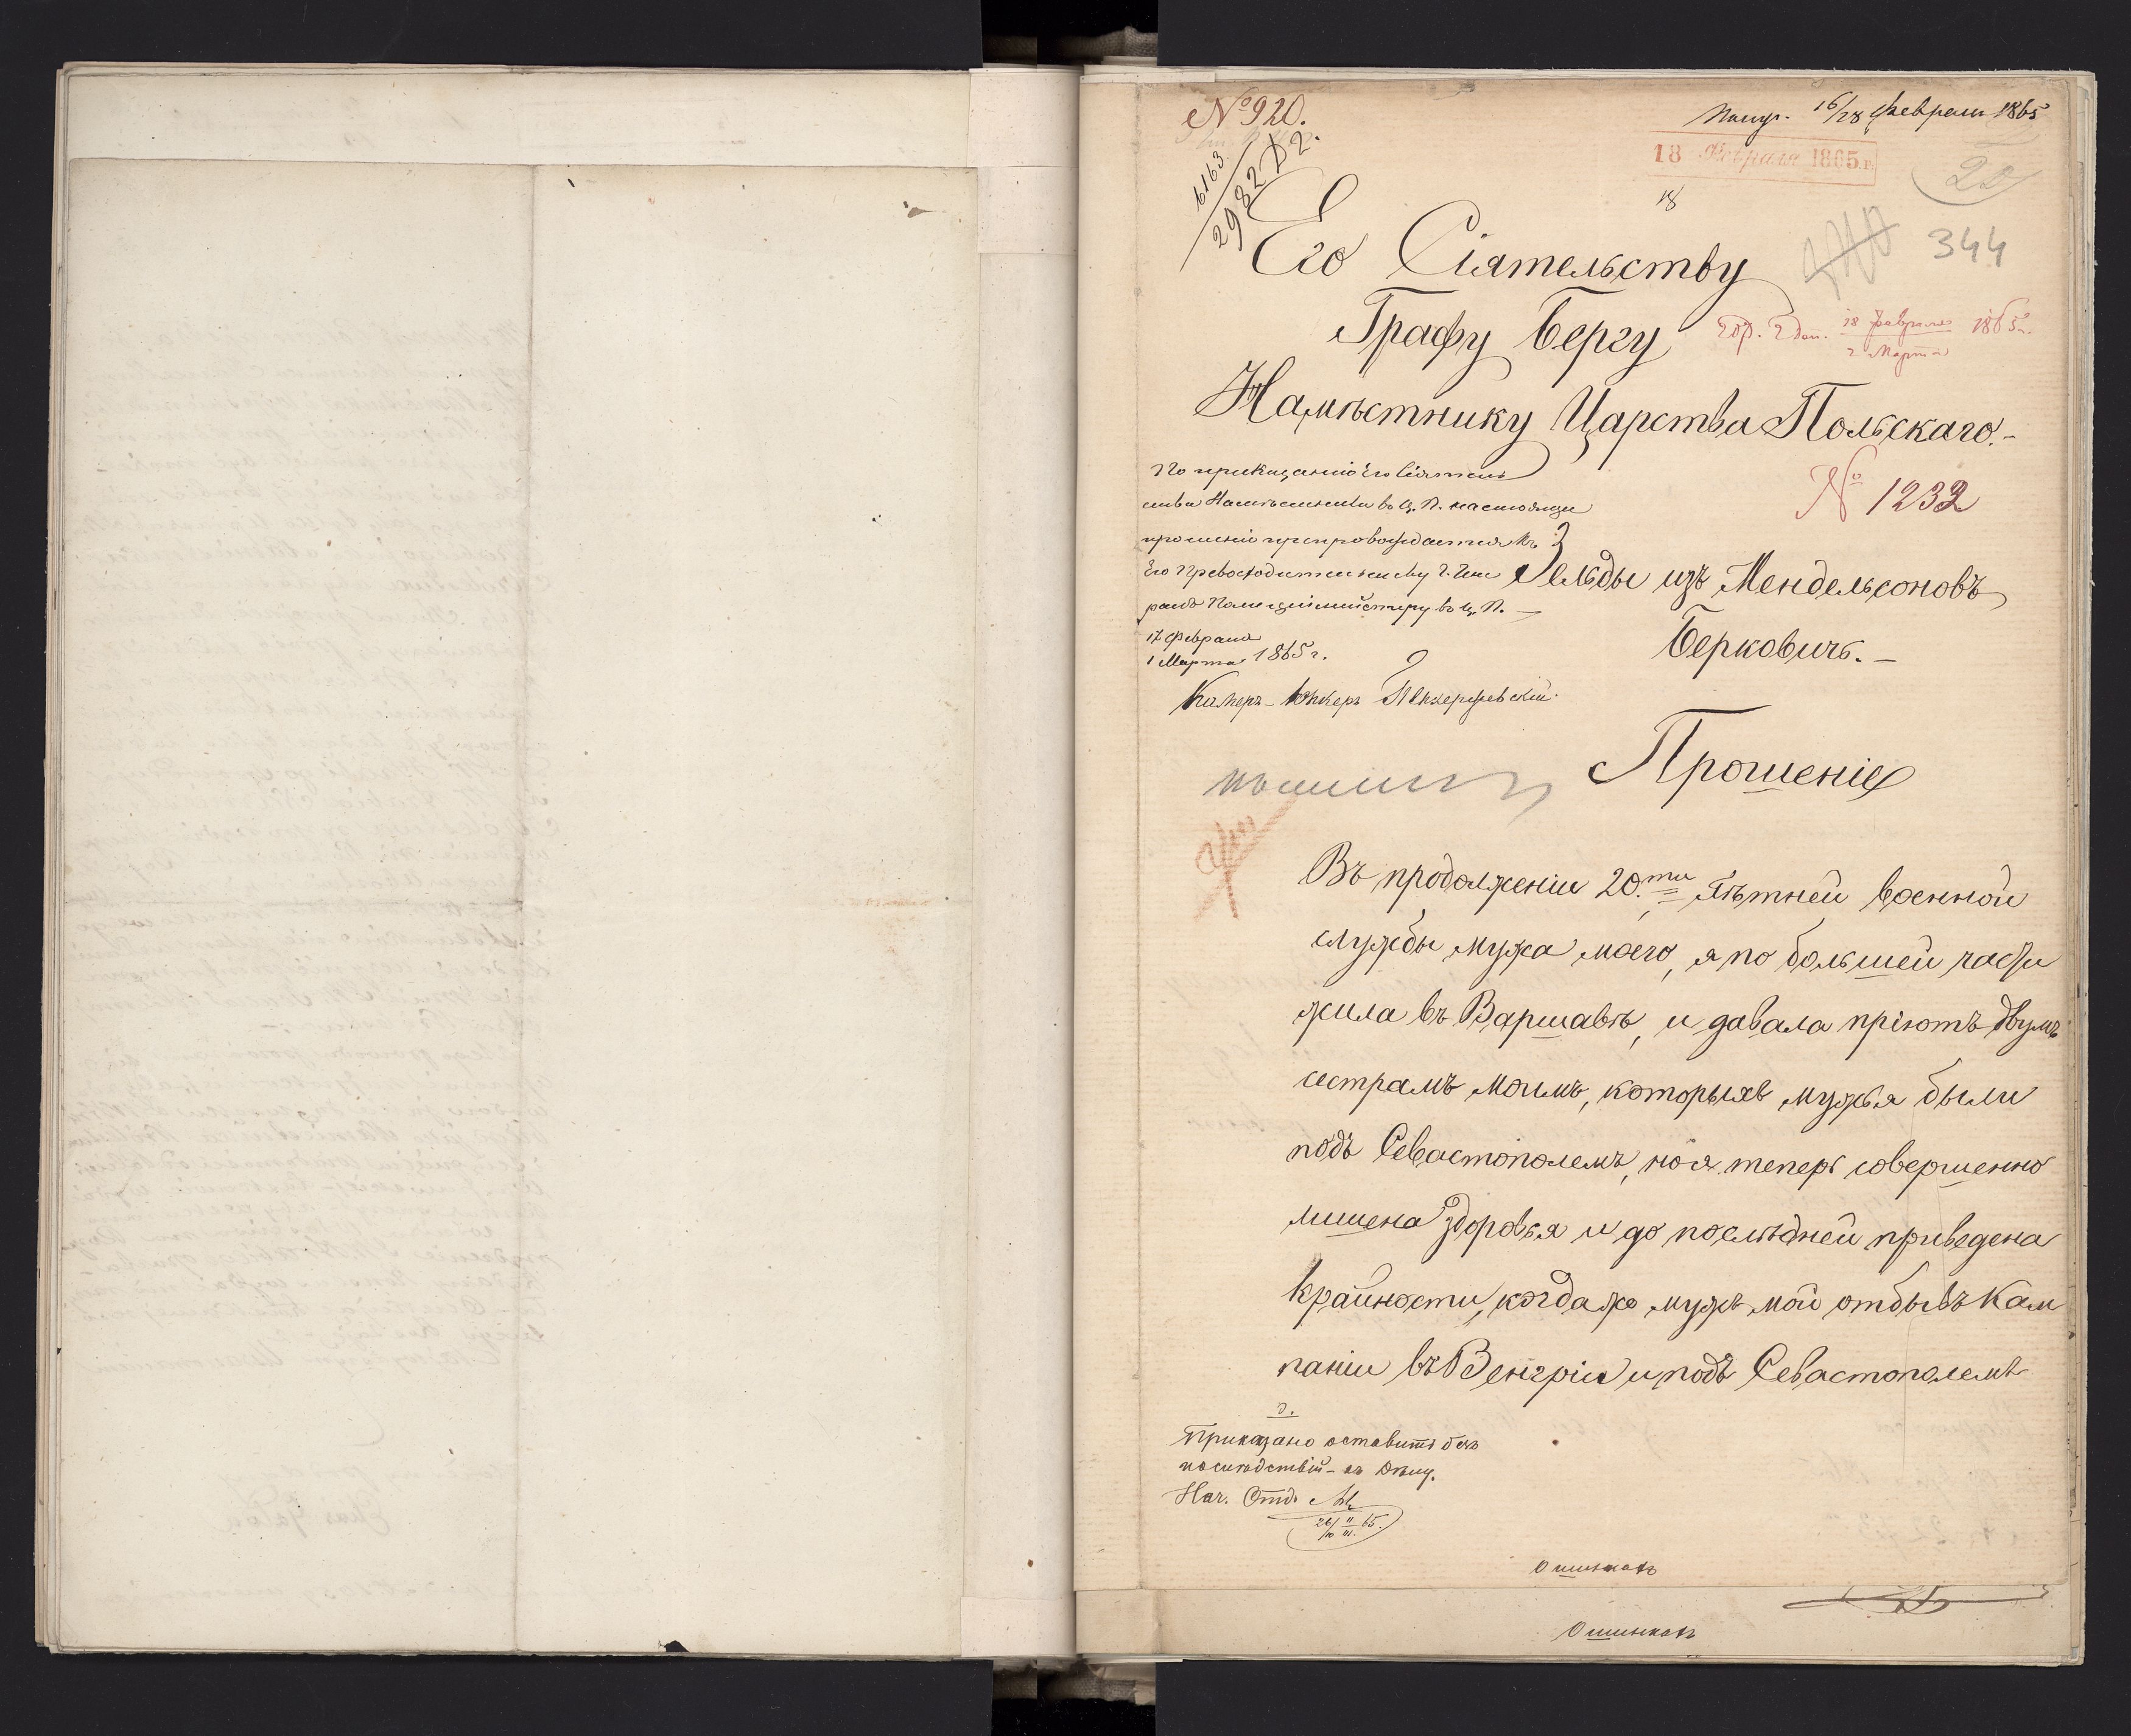 № 920.
6163
2982 Д 2.
Получ. 16/28 февраля 1865
18 Февраля 1865 г.
18
22
344
Его Сіятельству
Графу Бергу
18 февраля 1865 г.
2 Марта
Намѣстнику Царства Польскаго.-
№ 1232
По приказанію Его Сіятель
ства Намѣстника въ Ц. П. настояще
прошеніе препровождается къ
Его Превосходительству Г. Гене
ралъ Полиціймейстеру въ Ц. П. —
17 Февраля
1 Марта 1865 г.
Камеръ-Юнкеръ
Зельды изъ Мендельсоновъ
Берковичъ. —
Прошеніе
Въ продолженіи 20.ти лѣтней военной
службы мужа моего, я по большей части
жила въ Варшавѣ, и давала пріютъ двумъ
сестрамъ моимъ, которыхъ мужья были
подъ Севастополемъ, но я теперь совершенно
лишена здоровья и до послѣдней приведена
крайности, когда же мужъ мой отбывъ Кам
паніи въ Венгріи и подъ Севастополемъ
Приказано оставить безъ
послѣдствій - къ дѣлу.
Нач. Отд.
26/10 II/III. 65.